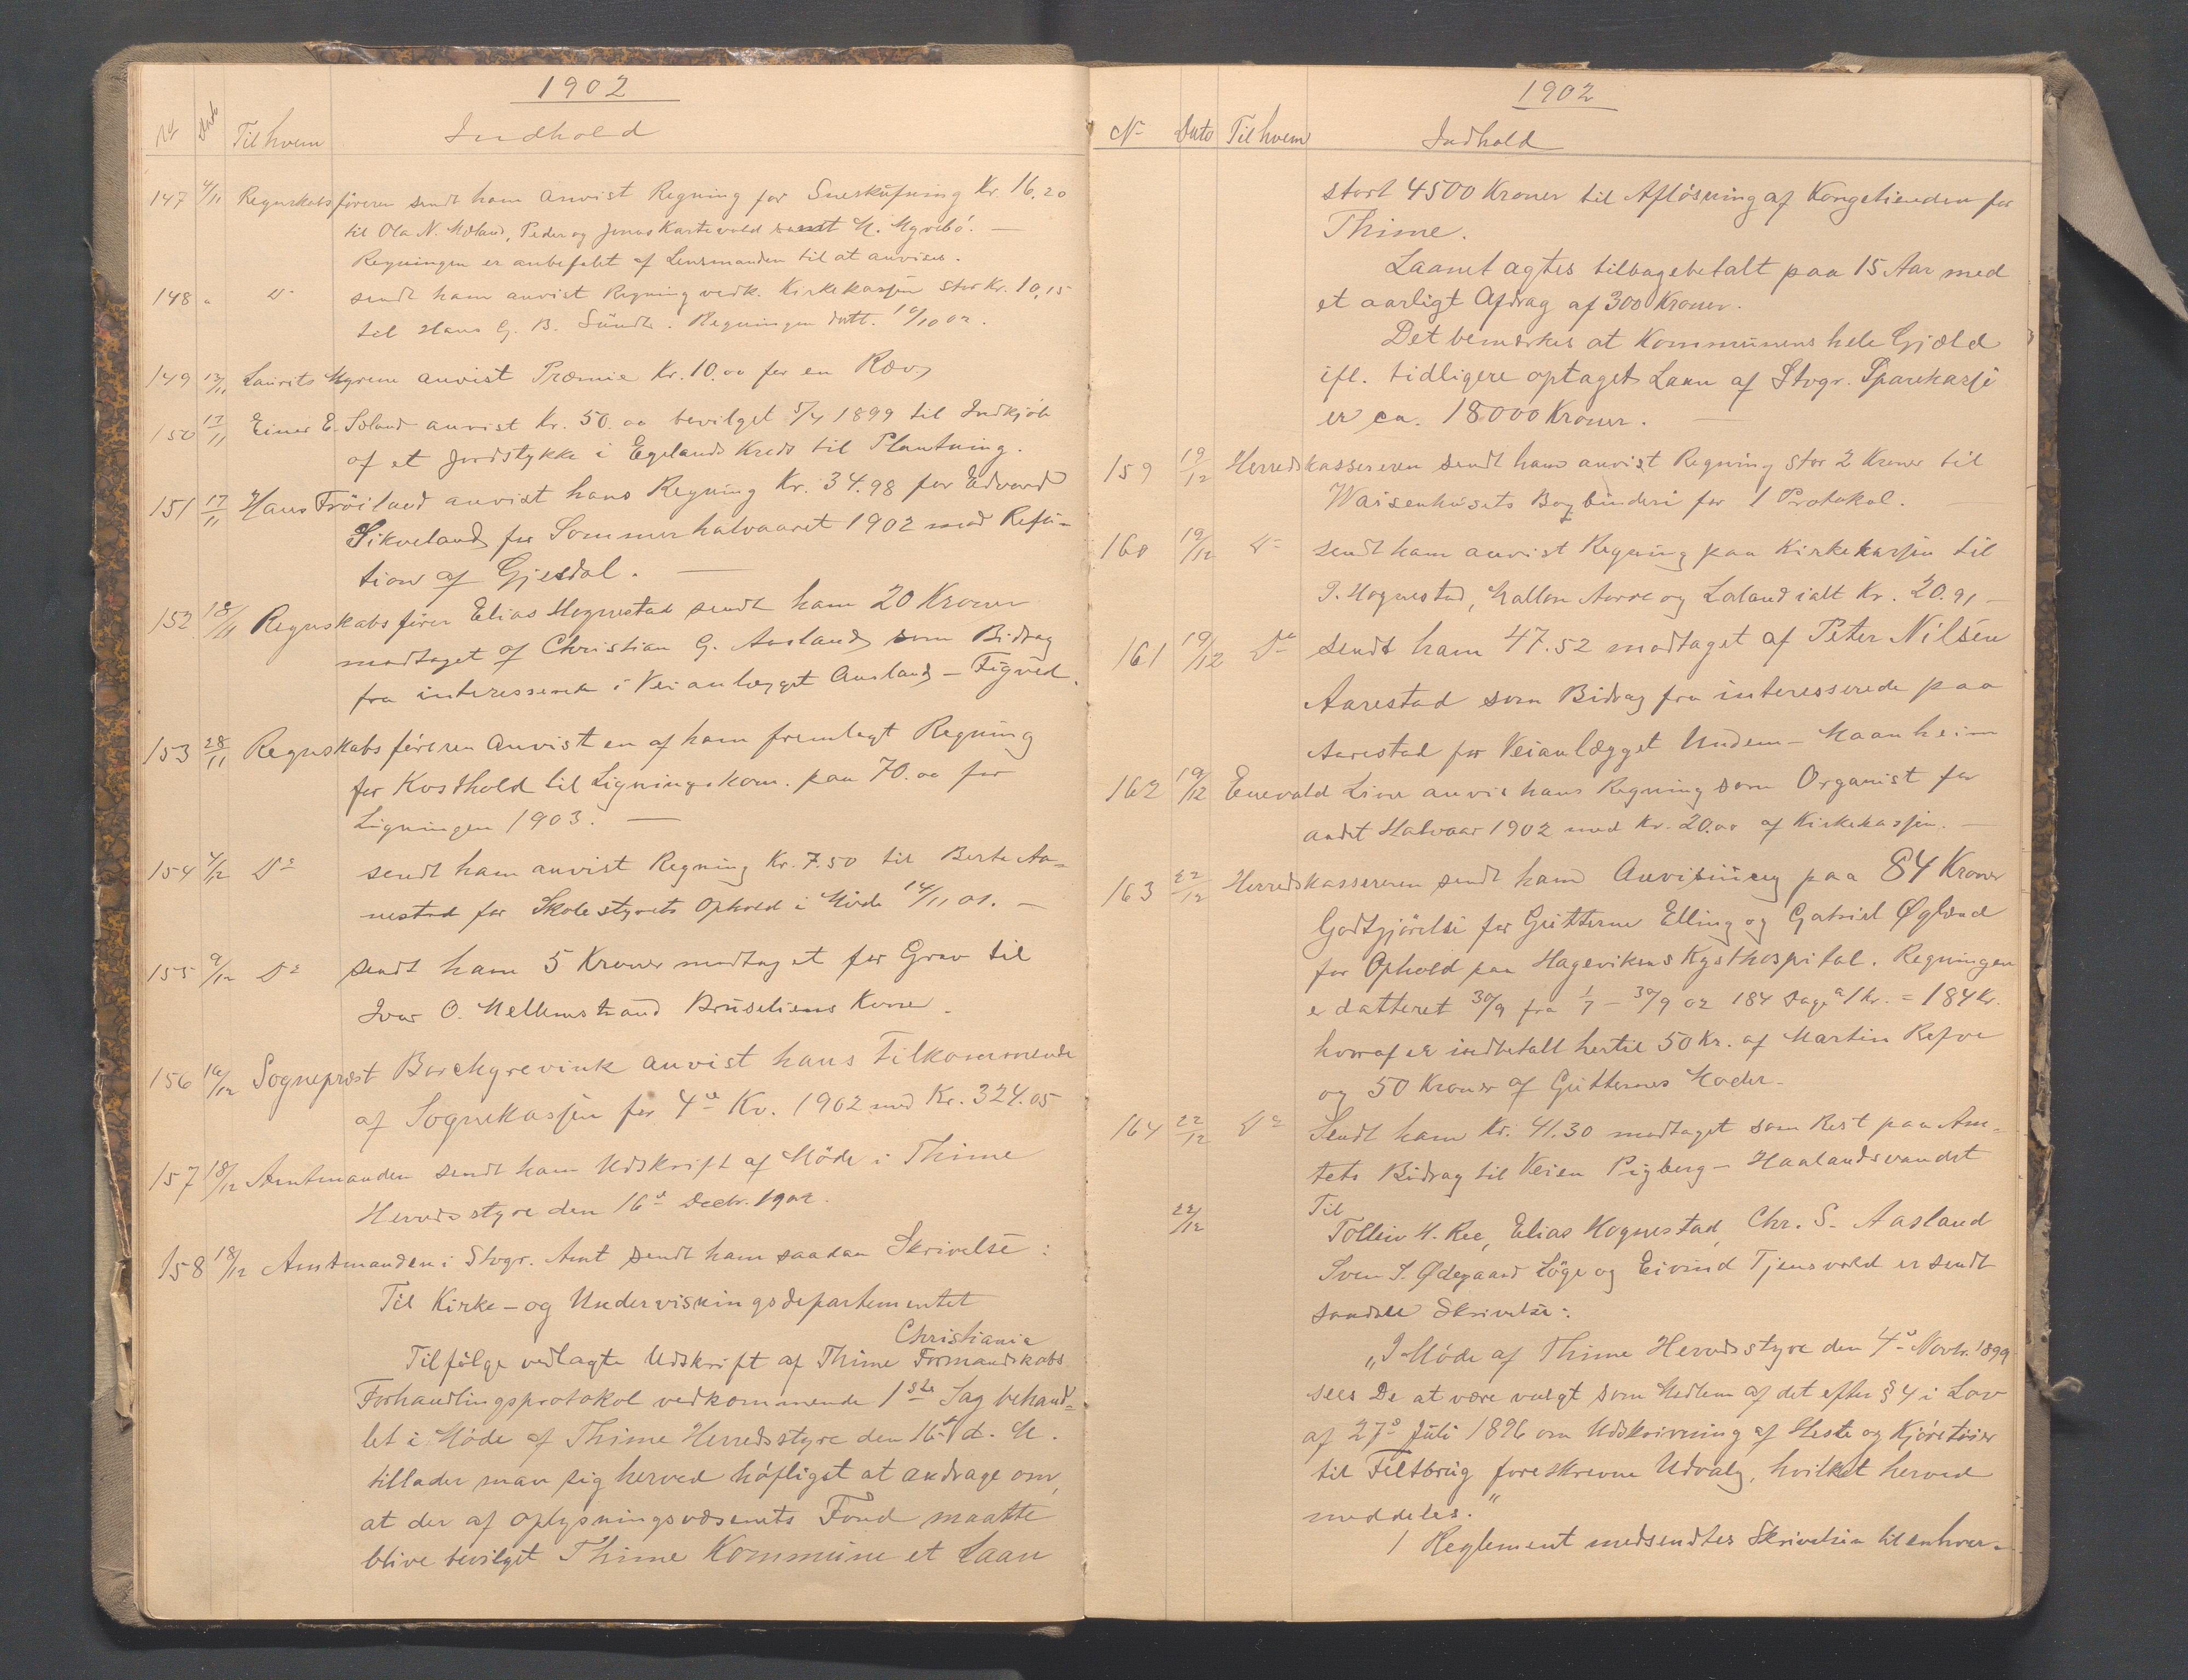 1902
No Dato Til hvem Indhold
147 4/11 Regnskabsföreren sendt ham anvist Regning for Sneskufning Kr. 16,20
til Ola N. Mæland, Peder og Jonas Kartevold samt M. Myrebö. —
Regningen er anbefalet af Lensmanden til at anvises.
148 " Do sendt ham anvist Regning vedk. Kirkekassen stor Kr. 10,15
til Hans G. B. Sundt. Regningen datt. 10/10 02.
149 12/11 Laurits Myrene anvist Præmie Kr. 10.00 for en Ræv
150 17/11 Einer E. Soland anvist Kr. 50.00 bevilget 5/4 1899 til Indkjöb
af et Jordstykke i Egelands Kreds til Plantning.
151 17/11 Hans Fröiland anvist hans Regning Kr. 34.98 for Edvard
Sikveland for Sommerhalvaaret 1902 mod Refu-
tion af Gjesdal. —
152 18/11 Regnskabsförer Elias Hognestad sendt ham 20 Kroner
modtaget af Christian G. Aasland som Bidrag
fra interesserede i Veianlægget Aasland - Tigred.
153 28/11 Regnskabsföreren anvist en af ham fremlagt Regning
for Kosthold til Ligningskom. paa 70.00 for
Ligningen 1903. —
154 4/12 Do sendt ham anvist Regning Kr. 7.50 til Berte Aa=
nestad for Skolestyrets Ophold i Möde 14/11 01. —
155 9/12 Do sendt ham 5 Kroner modtaget for Grav til
Ivar O. Mellemstrand Bruseliens Kone.
156 16/12 Sogneprest Borchgrevink anvist hans Tilkommende
af Sognekassen for 4de Kv. 1902 med Kr. 324.05
157 18/12 Amtmanden sendt ham Udskrift af Möde i Thime
Herredsstyre den 16de Decbr. 1902.
158 18/12 Amtmanden i Stvgr. Amt sendt ham saadan Skrivelse:
Til Kirke- og Undervisningsdepartementet
Christiania
Tilfölge vedlagte Udskrift af Thime Formandskabs
Forhandlingsprotokol vedkommende 1ste Sag behand=
let i Möde af Thime Herredsstyre den 16de d. M.
tillader man sig herved höfligst at andrage om,
at der af Oplysningsvæsenets Fond maatte
blive bevilget Thime Kommune et Laan
1902
No Dato Til hvem Indhold
stort 4500 Kroner til Aflösning af Kongetienden for
Thime.
Laanet agtes tilbagebetalt paa 15 Aar med
et aarligt Afdrag af 300 Kroner.
Det bemærkes at Kommunens hele Gjæld
ifl. tidligere optaget Laan af Stvgr. Sparekasse
er ca. 18000 Kroner. —
159 19/12 Herredskassereren sendt ham anvist Regning stor 2 Kroner til
Waisenhusets Bogbinderi for 1 Protokol. —
160 19/12 Do sendt ham anvist Regning paa Kirkekassen til
P. Hognestad, Mallon Aarre og Laland ialt Kr. 20.91 —
161 19/12 Do sendt ham 47.52 modtaget af Peter Nilsen
Aarestad som Bidrag fra interesserede paa
Aarestad for Veianlægget Undem - Maanheim
162 19/12 Enevald Line anvis hans Regning som Organist for
andet Halvaar 1902 med Kr. 20.00 af Kirkekassen. —
163 22/12 Herredskassereren sendt ham Anvisning paa 84 Kroner
Godtgjörelse for Gutterne Elling og Gabriel Øglænd
for Ophold paa Hagevikens Kysthospital. Regningen
er datteret 30/9 fra 1/7 - 30/9 02 184 Dage a 1 Kr. = 184 Kr.
hvoraf er indbetalt hertil 50 Kr. af Martin Refve
og 50 Kroner af Gutternes Moder —
164 22/12 Do Sendt ham Kr. 41.30 modtaget som Rest paa Am=
tets Bidrag til Veien Pigberg - Haalandsvandet
22/12 Til
Tolleiv H. Ree, Elias Hognestad, Chr. S. Aasland
Sven S. Ødegaard Löge og Eivind Tjensvold er sendt
saadan Skrivelse:
„I Möde af Thime Herredsstyre den 4de Novbr. 1899
sees De at være valgt som Medlem af det efter § 4 i Lov
af 27de Juli 1896 om Udskrivning af Heste og Kjöretöier
til Feltbrug foreskrevne Udvalg, hvilket herved
meddeles."
1 Reglement medsendtes Skrivelsen til enhver.